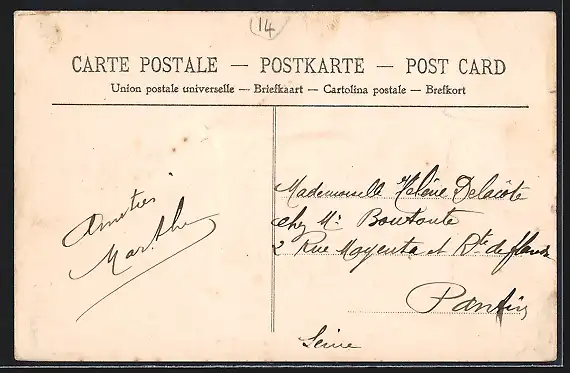 14
CARTE POSTALE — POSTKARTE — POST CARD
Union postale universelle — Briefkaart — Cartolina postale — Brefkort
Amitiés
Marthe
Mademoiselle Hélène Delacôte
chez Mr Boutonté
2 Rue Magenta et Rte de flandre
Pantin
Seine